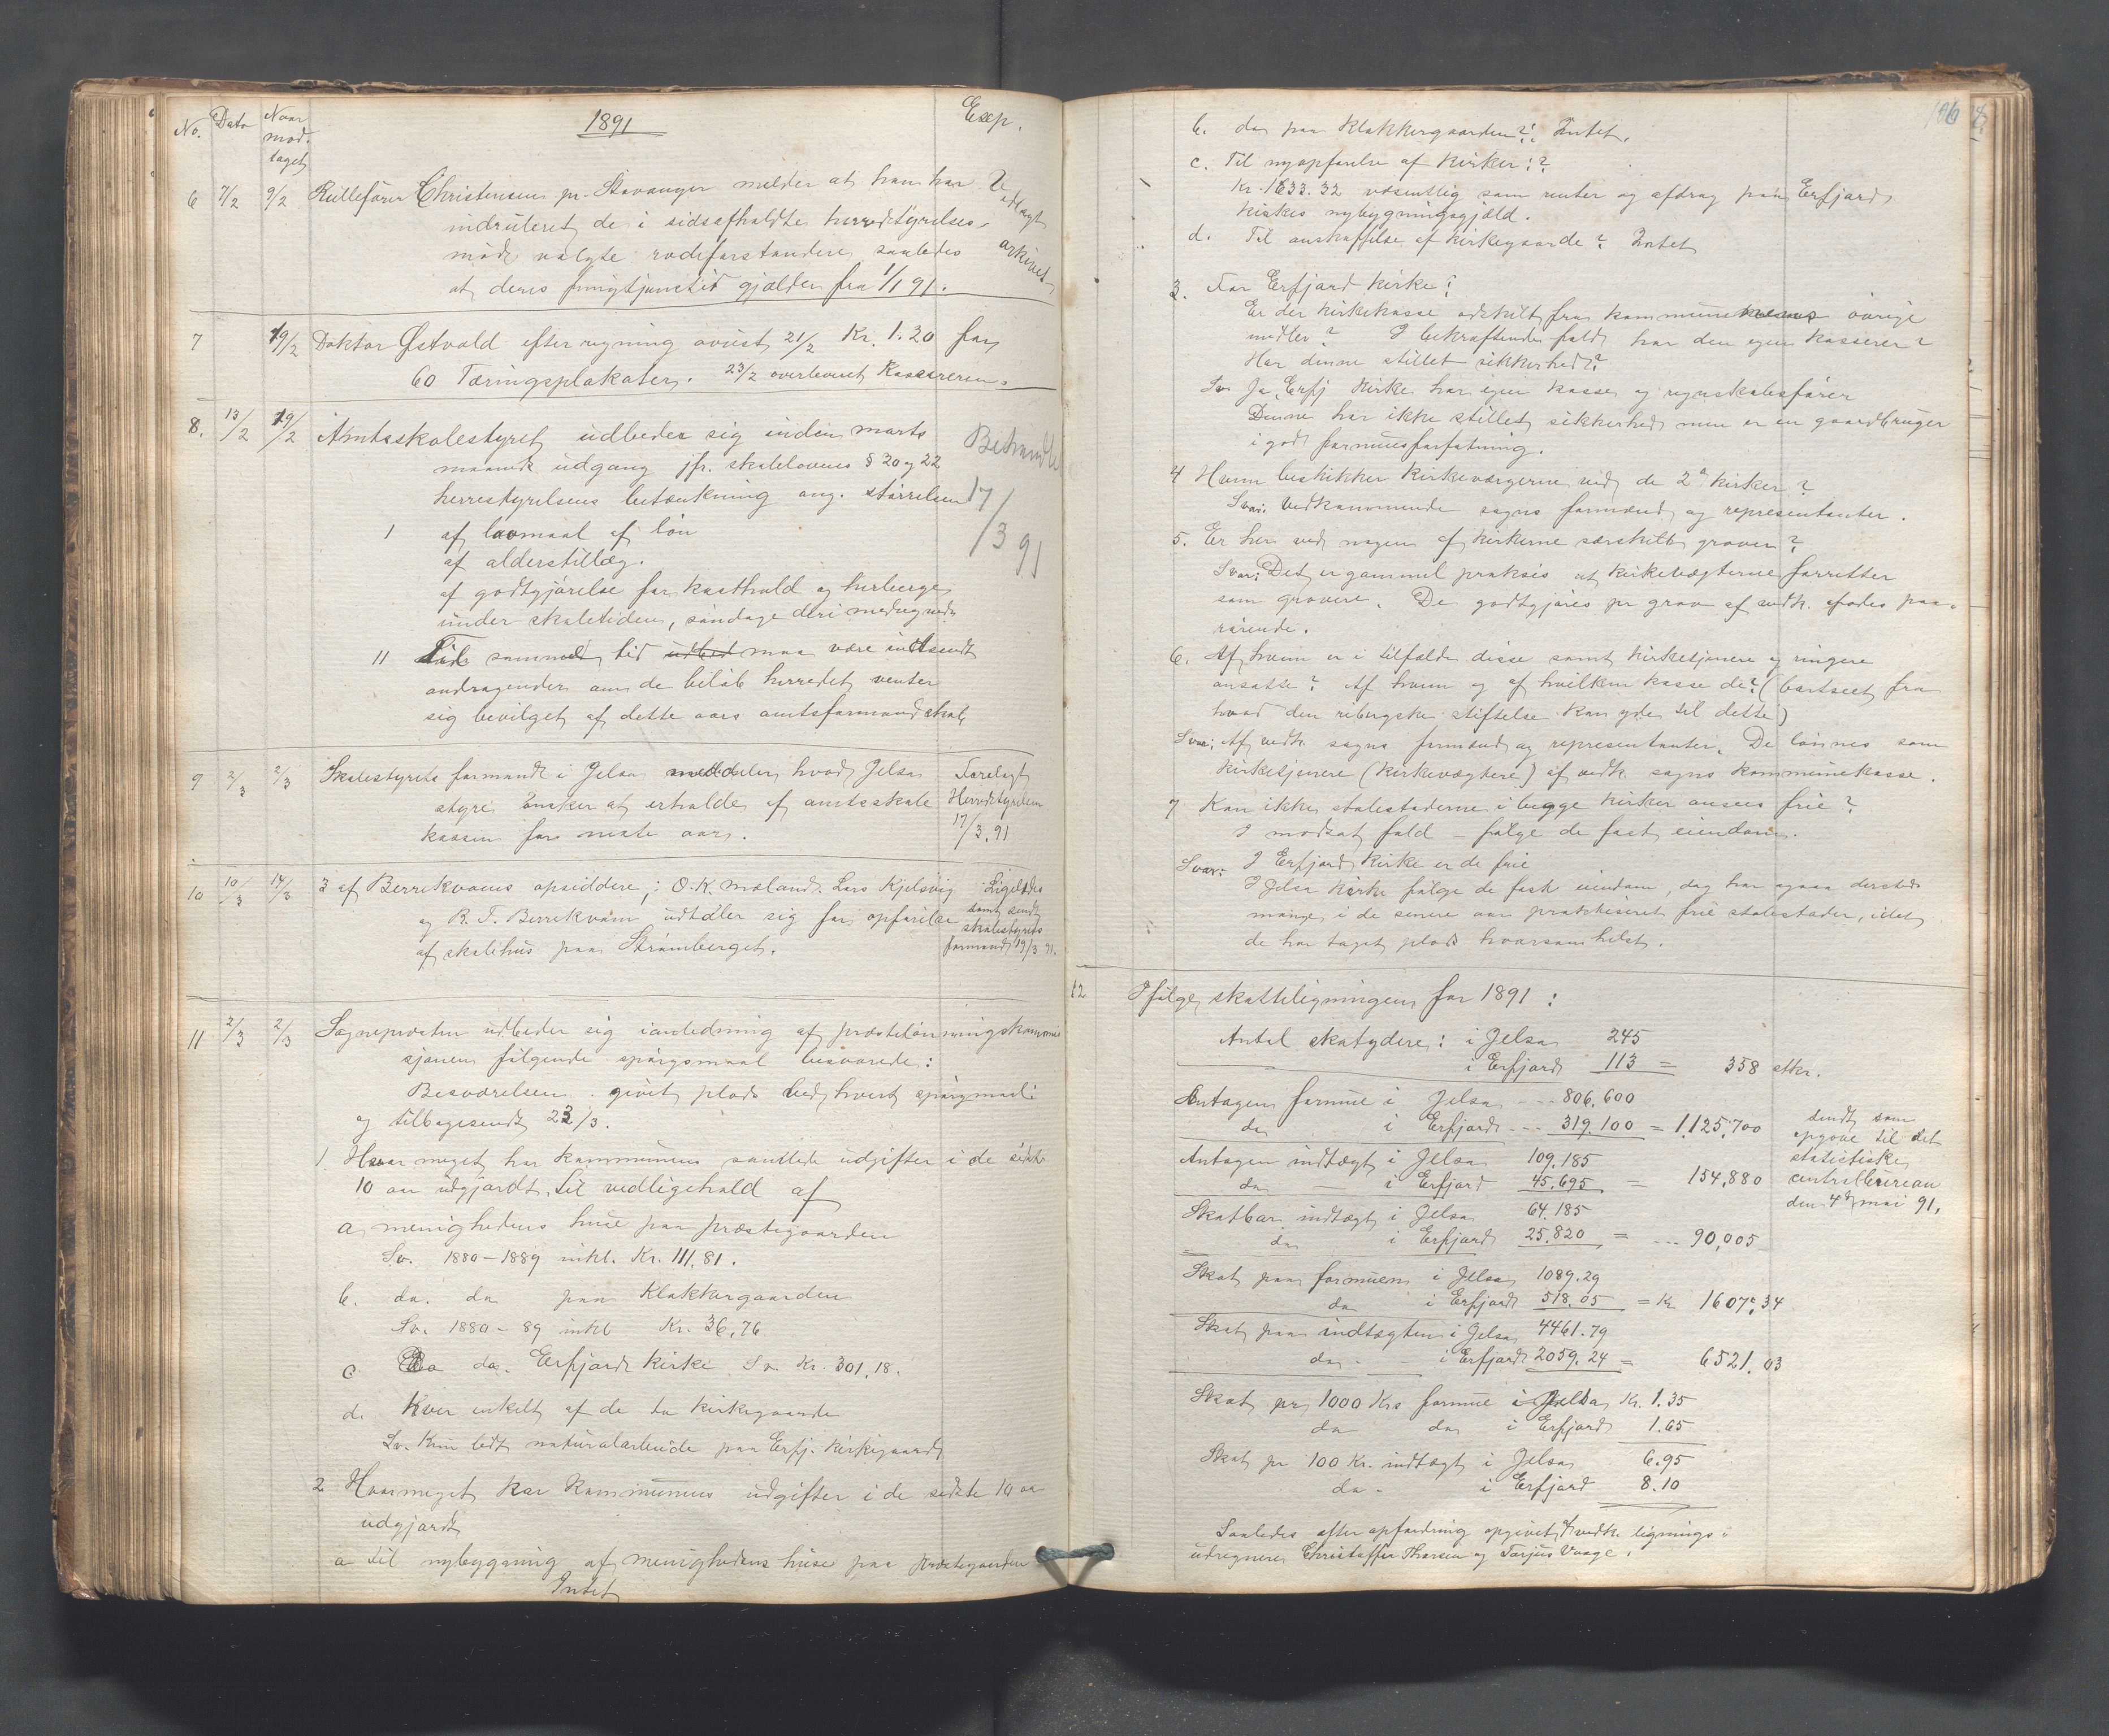 No. Dato Naar mod- taget 1891 Exp.
6 7/2 9/2 Rullefører Christensen pr. Stavanger melder at han har
indrulleret de i sidsafholdte herredstyrelses-
møde valgte rodeforstandere saaledes
at deres tjenestetid gjælder fra 1/1 91.
arkivet
7 19/2 Doktor Østvold efter regning avist 21/2 Kr. 1.30 for
60 Tæringsplakater. 23/2 overleveret Kassereren.
8. 13/2 19/2 Amtsskolestyret udbeder sig inden marts
maaneds udgang jfr. skolelovens § 20 og 22
herrestyrelsens betænkning ang. størrelsen
Behandlet
17/3 91
1 af lavmaal af løn
af alderstillæg.
af godtgjørelse for kosthold og herberge
under skoletiden, søndage deri medregnede
11 Til samme tid udbed maa være indsendt
andragender om de beløb herredet venter
sig bevilget af dette aars amtsformandskab
9 2/3 2/3 Skolestyrets formand i Jelsa meddeler hvad Jelsa
styre ønsker at erholde af amtsskole
kassen for neste aar.
Forelagt
Herredstyrelsen
17/3. 91
10 10/3 14/3 3 af Berrekvams opsiddere; O. K. Moland. Lars Kjelsvig
og R. T. Berrekvam udtaler sig for opførelse
af skolehus paa Strømberget.
Ligeledes
samt sendt
skolestyrets
formand 19/3 91.
11 2/3 2/3 Sogneprosten udbeder sig i anledning af præstelønningskommi
sjonen følgende spørgsmaal besvarede:
Besvarelsen givet plads ved hvert spørgsmaal
og tilbagesendt 23/3.
1. Hvor meget har kommunens samtlede udgifter i de sidste
10 aar udgjordt til vedligehold af
a, menighedens huse paa præstegaarden
Sv. 1880-1889 inkl. Kr. 111,81.
b. do. do paa Klokkergaarden
Sv. 1880-89 inkl Kr. 36,76
c Do do. Erfjord kirke Sv. Kr. 301,18.
d. Hver enkelt af de to kirkegaarde
Sv. Kun lidt naturalarbeide paa Erfj. Kirkegaard
2 Hvormeget har kommunens udgifter i de sidste 10 aar
udgjordt
a til nybygning af menighedens huse paa Præstegaarden
Intet
106
b. do paa Klokkergaarden?: Intet.
c. Til nyopførelse af kirker:?
Kr. 1633.32 væsentlig som renter og afdrag paa Erfjord
kirkes nybygningsgjæld.
d. Til anskaffelse af kirkegaarde? Intet
3. For Erfjord kirke:
Er der kirkekasse adskilt fra kommunekassens øvrige
midler? I bekræftende fald, har den egen kasserer?
Har denne stillet sikkerhed?
Sv. Ja, Erfj kirke har egen kasse og regnskabsfører
Denne har ikke stillet sikkerhed men er en gaardbruger
i god formuesforfatning.
4 Hvem beskikker kirkeværgerne ved de 2de kirker?
Svar: Vedkommende sogns formænd og representanter.
5. Er her ved nogen af kirkerne særskilt graver?
Svar: Det er gammel praksis at kirkevægterne forretter
som gravere. De godtgjøres pr grav af vedk. afødes paa-
rørende.
6. Af hvem er i tilfælde disse samt kirketjenere og ringere
ansatte? Af hvem og af hvilken kasse de? (bortseet fra
hvad den stiftelse kan yde til dette)
Svar: Af vedk. sogns formænd og representanter. De lønnes som
kirketjenere (kirkevægtere) af vedk. sogns kommunekasse.
7 Kan ikke stolestaderne i begge kirker ansees frie?
I modsat fald - følge de fast eiendom.
Svar: I Erfjord kirke er de frie
I Jelsa kirke følge de fast eiendom, dog har ogsaa dersteds
mange i de senere aar praktiseret frie stolestader, idet
de har taget plads hvorsomhelst.
12 Ifølge skatteligningen for 1891:
Antal skatydere: i Jelsa 245
i Erfjord 113 = 358 stkr.
Antagen formue i Jelsa --- 806,600
do i Erfjord --- 319,100 = 1,125,700
Antagen indtægt i Jelsa 109,185
do — i Erfjord 45,695 = 154,880
Skatbar indtægt i Jelsa 64,185
do i Erfjord 25,820 = ... 90,005
sendt som
opgave til det
statistiske
centralbureau
den 4de mai 91.
Skat paa formuen i Jelsa 1089.29
do i Erfjord 518,05 = Kr 1607,34
Skat paa indtægten i Jelsa 4461.79
do - - i Erfjord 2059.24 = 6521,03
Skat pr 1000 Krs formue i Jelsa Kr. 1.35
do do i Erfjord 1.65
Skat pr 100 Kr. indtægt i Jelsa 6.95
do - i Erfjord 8.10
Saaledes efter opfordring opgivet af vedk. lignings-
udregnere Christoffer Thorsen og Torjus Vaage.